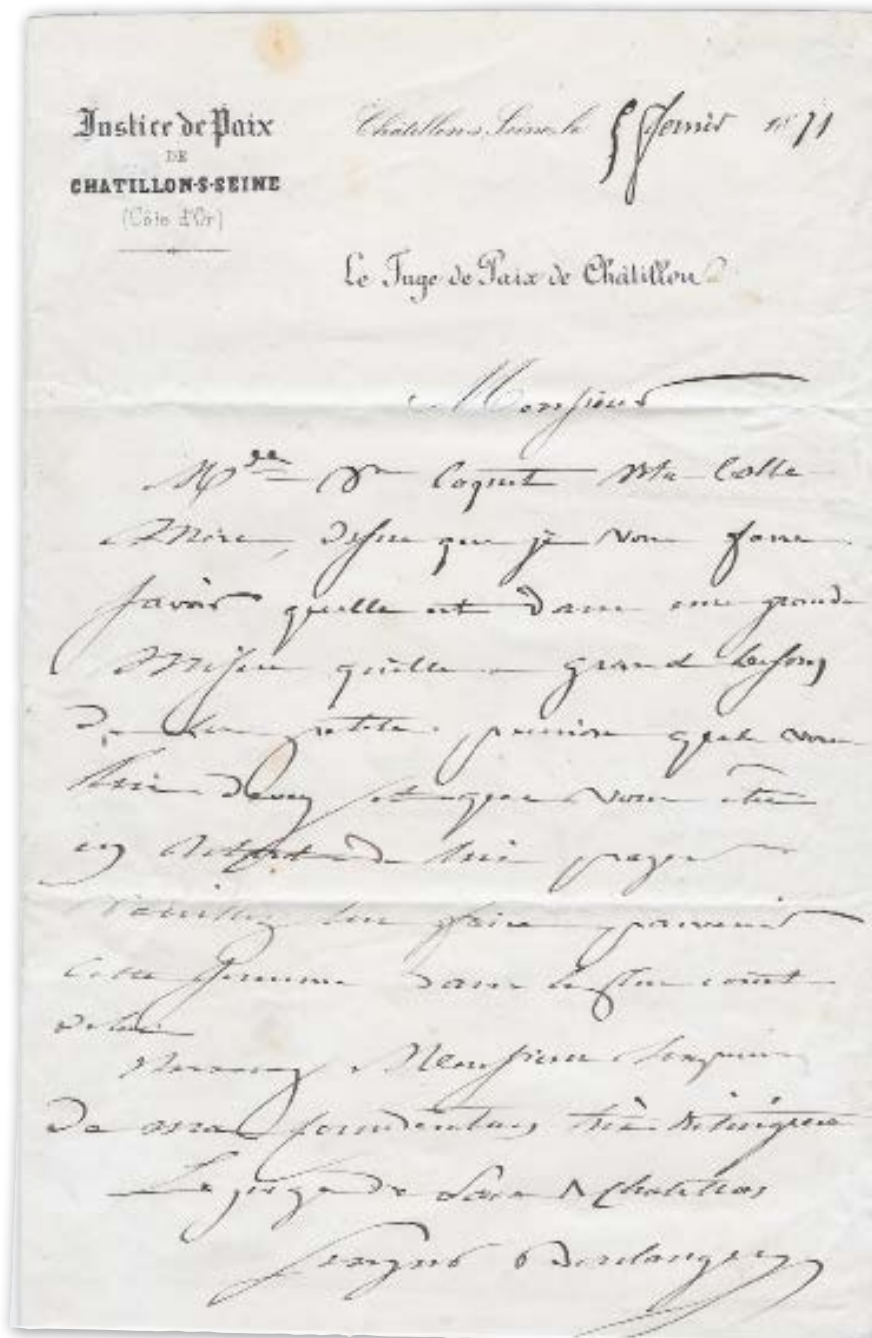 Justice de Paix
DE
CHATILLON-S-SEINE
(Côte d'Or)
Châtillon s. Seine, le 5 février 1871
Le Juge de Paix de Châtillon
Monsieur
Coquet Ma Belle
Mère, désire que je vous fasse
savoir quelle est dans une grande
Misère quelle a grand besoin
de la petite pension que vous
lui devez et que vous êtes
en retard de lui payer
Veuillez lui faire parvenir
cette somme dans le plus court
délai
Recevez Monsieur
De ma considération très distinguée
Le juge de Paix de Chatillon
Boulanger